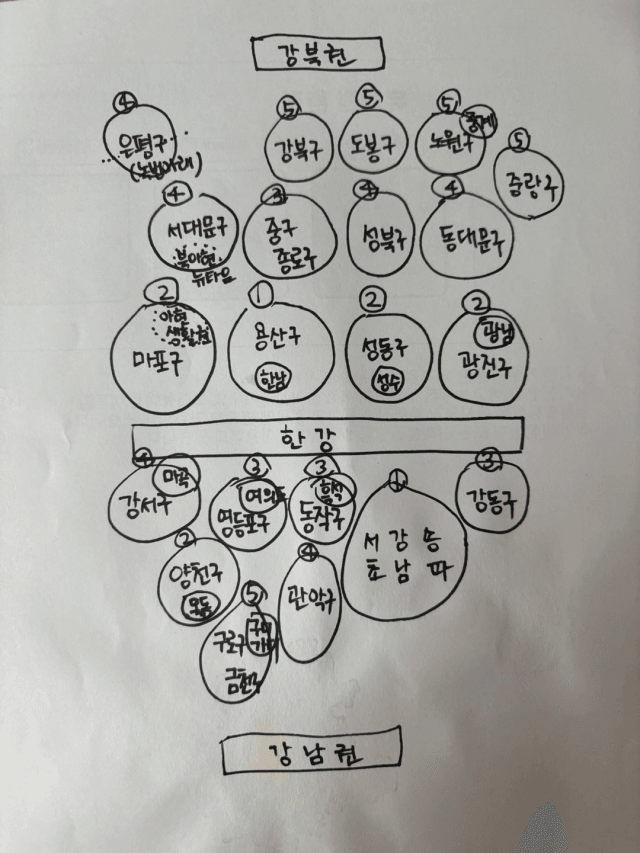 강북권
④
은평구
(녹번아래)
⑤
강북구
⑤
도봉구
⑤
노원구
중계
⑤
중랑구
④
서대문구
북아현
뉴타운
③
중구
종로구
④
성북구
④
동대문구
②
아현
생활권
마포구
①
용산구
한남
②
성동구
성수
②
광남
광진구
한강
④
마곡
강서구
③
여의도
영등포구
③
흑석
동작구
①
서 강 송
초 남 파
③
강동구
②
양천구
목동
④
관악구
⑤
구로구
금천구
강남권